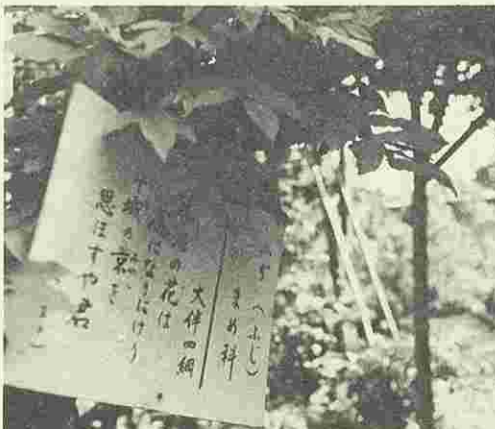 (ふじ)
まめ科
大伴四綱
の花は
になりにけり
京を
思ほすや君